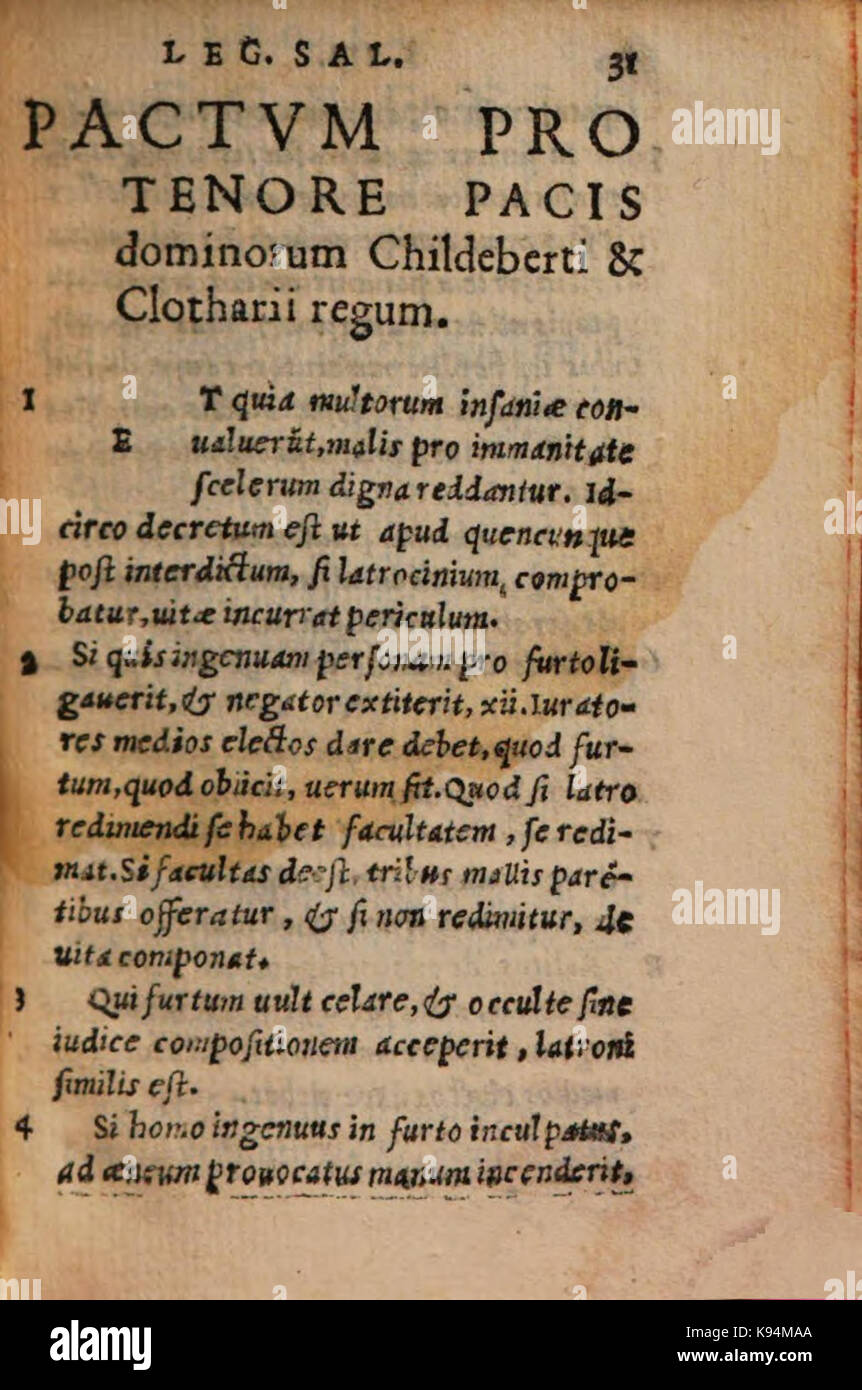 LEG. SAL. 31
PACTVM PRO
TENORE PACIS
dominorum Childeberti &
Clotharii regum.
1 ET quia multorum insaniæ con-
ualuerũt, malis pro immanitate
scelerum digna reddantur. Id-
circo decretum est ut apud quencunque
post interdictum, si latrocinium, compro-
batur, uitæ incurrat periculum.
2 Si quis ingenuam personam pro furto li-
gauerit, & negator extiterit, xii. Iurato-
res medios electos dare debet, quod fur-
tum, quod obiicit, uerum sit. Quod si latro
redimendi se habet facultatem, se redi-
mat. Si facultas deest, tribus mallis parẽ-
tibus offeratur, & si non redimitur, de
uita componat.
3 Qui furtum uult celare, & occulte sine
iudice compositionem acceperit, latroni
similis est.
4 Si homo ingenuus in furto inculpatus,
ad æneum prouocatus manum incenderit,
alamy
alamy
Image ID: K94MAA
www.alamy.com